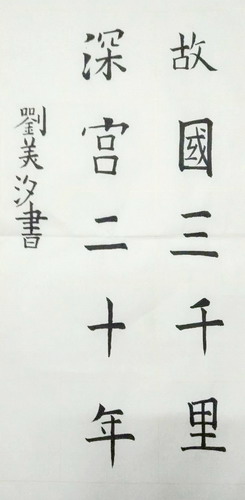 故國三千里
深宫二十年
劉美汐書